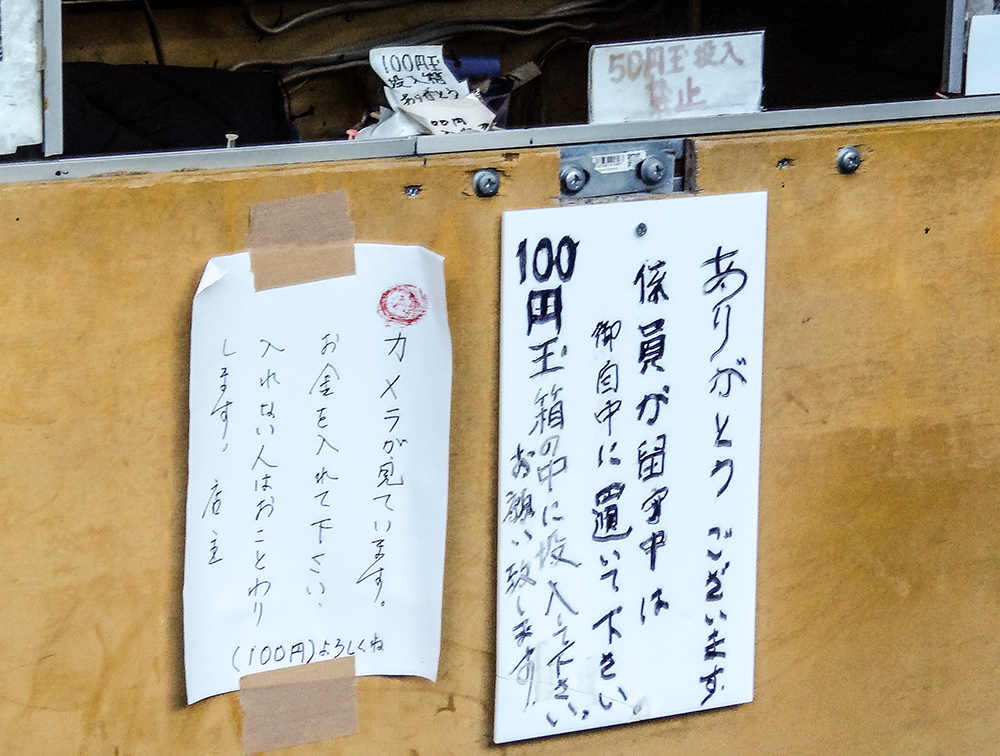 100円玉
投入箱
ありがとう
00円
50円玉投入
禁止
ありがとうございます
係員が留守中は
御自中に置いて下さい
100円玉箱の中に投入して下さい。
お願い致します
カメラが見ています。
お金を入れて下さい、
入れない人はおことわり
します。 店主
(100円)よろしくね